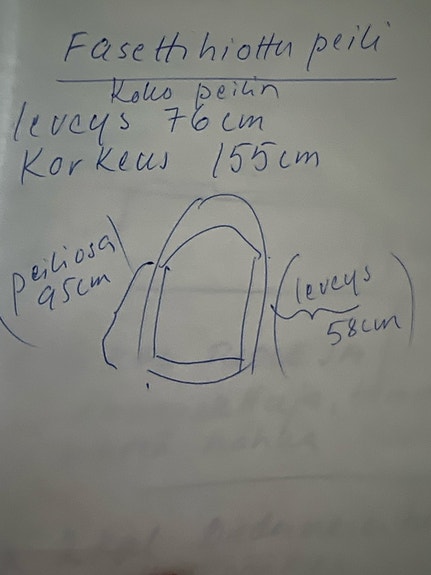 Fasettihiottu peili
Koko peilin
leveys 76 cm
Korkeus 155 cm
peiliosa
95cm
leveys
58cm